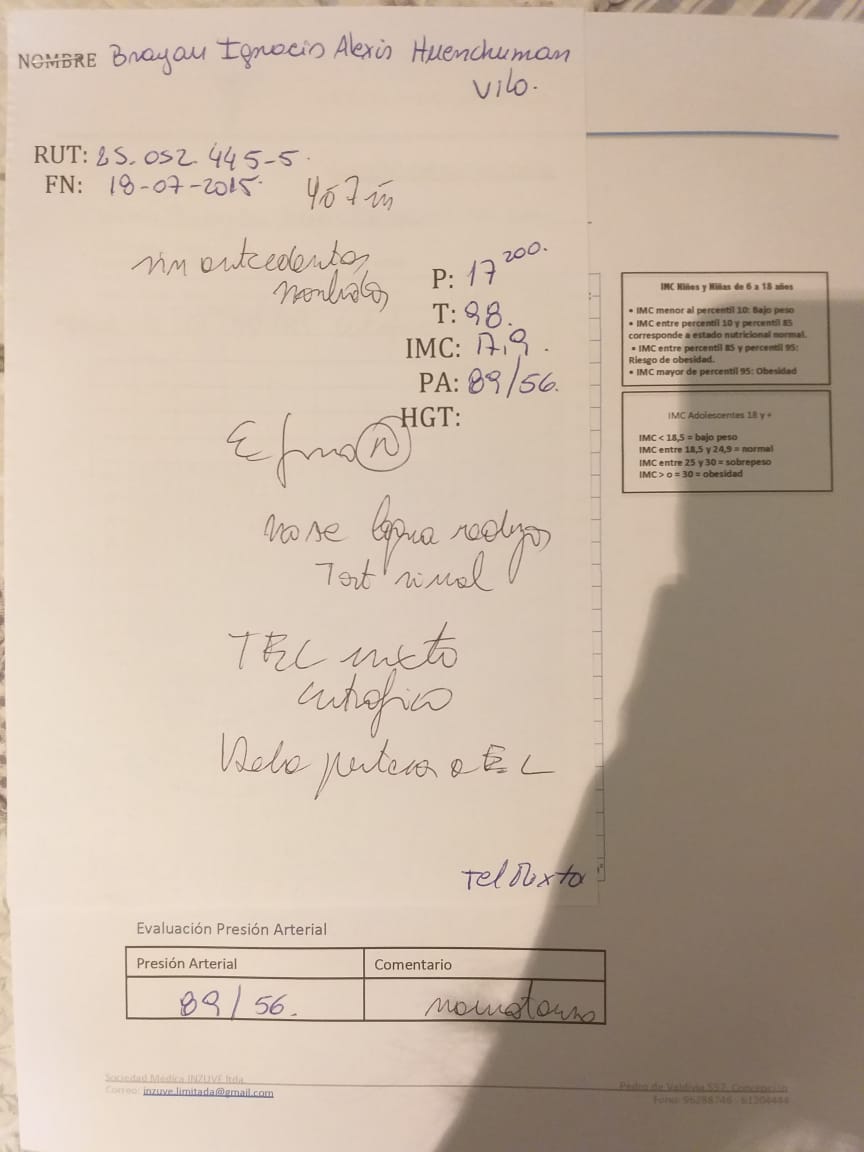 NOMBRE Brayan Ignacio Alexis Huenchuman
Vilo.
RUT: 25.052.445-5.
FN: 18-07-2015. 4a 7m
sin antecedentes
morbidos
P: 17 200.
T: 98.
IMC: 17,9.
PA: 89/56.
HGT:
E fisico (N)
no se logra realizar
Test visual
TEL mixto
eutrofico
Debe pertenecer a EL
Tel Mixto
IMC Niños y Niñas de 6 a 18 años
• IMC menor al percentil 10: Bajo peso
• IMC entre percentil 10 y percentil 85
corresponde a estado nutricional normal.
• IMC entre percentil 85 y percentil 95:
Riesgo de obesidad.
• IMC mayor de percentil 95: Obesidad
IMC Adolescentes 18 y +
IMC < 18,5 = bajo peso
IMC entre 18,5 y 24,9 = normal
IMC entre 25 y 30 = sobrepeso
IMC > o = 30 = obesidad
Evaluación Presión Arterial
Presión Arterial Comentario
89/56. normotenso
Sociedad Medica INZUVE ltda.
Correo: inzuve.limitada@gmail.com
Pedro de Valdivia 557, Concepción
Fono: 96288746 - 61204444